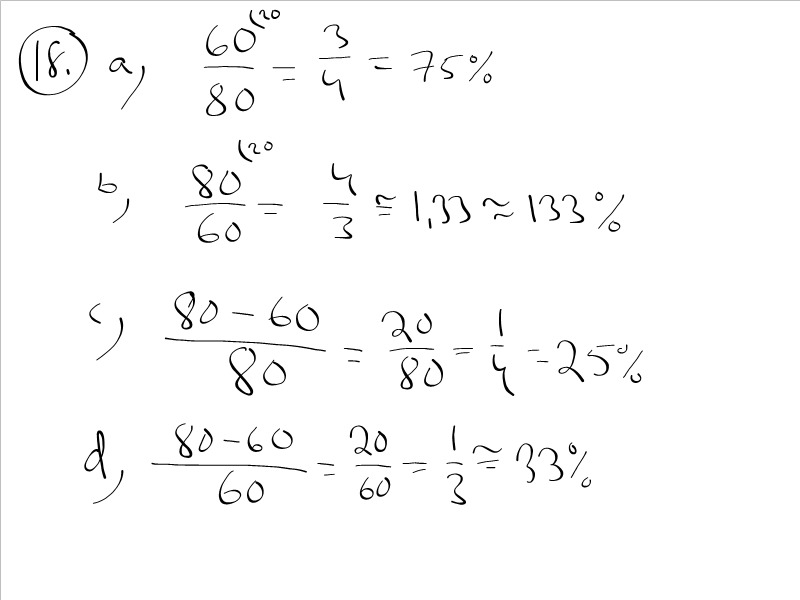 18. a, 60(20/80 = 3/4 = 75%
b, 80(20/60 = 4/3 ≅ 1,33 ≈ 133%
c, 80-60/80 = 20/80 = 1/4 = 25%
d, 80-60/60 = 20/60 = 1/3 ≅ 33%